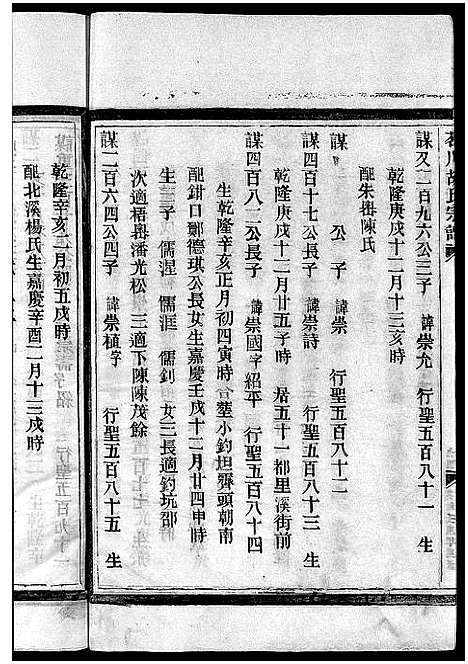 川胡氏宗譜
謀又二百九六公三子 諱崇允 行聖五百八十一 生
乾隆庚戌十二月十三亥時
配朱嶴陳氏
謀 公子 諱崇 行聖五百八十二
謀四百十七公長子 諱崇詩 行聖五百八十三 生
乾隆庚戌十二月廿五子時 居五十一都里溪街前
謀四百八二公長子 諱崇國字紹平 行聖五百八十四
生乾隆辛亥正月初四寅時 合塟小釣坦霽頭朝南
配鉗口鄭德琪公長女生嘉慶壬戌十二月廿四申時
生三子 儒湟 儒洭 儒釗 女三長適釣坑邵
次適梧嶴潘光松 三適下陳陳茂餘
謀二百六四公四子 諱崇植字 行聖五百八十五 生
乾隆辛亥二月初五戌時
配北溪楊氏生嘉慶辛酉二月十三戌時